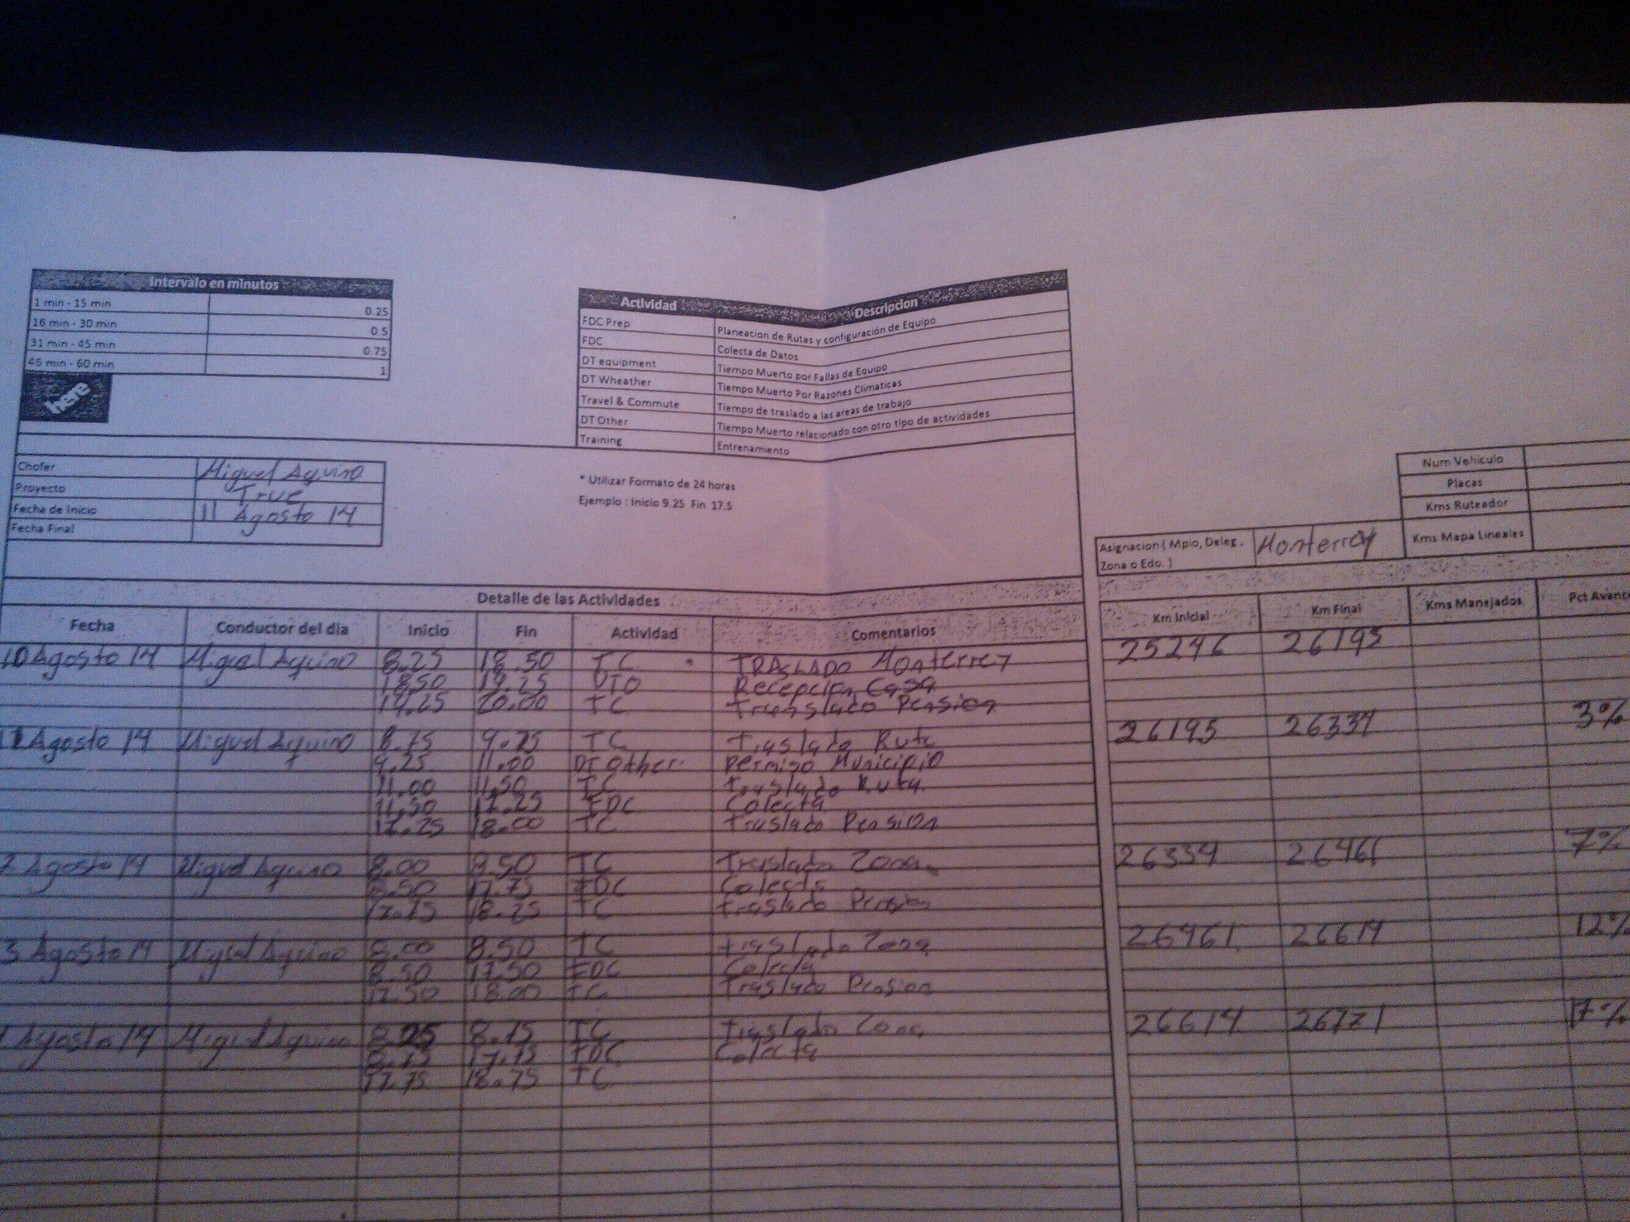 Intervalo en minutos
1 min - 15 min 0.25
16 min - 30 min 0.5
31 min - 45 min 0.75
46 min - 60 min 1
here
Actividad Descripcion
FDC Prep Planeacion de Rutas y configuración de Equipo
FDC Colecta de Datos
DT equipment Tiempo Muerto por Fallas de Equipo
DT Wheather Tiempo Muerto Por Razones Climaticas
Travel & Commute Tiempo de traslado a las areas de trabajo
DT Other Tiempo Muerto relacionado con otro tipo de actividades
Training Entrenamiento
Chofer Miguel Aquino
Proyecto True
Fecha de Inicio 11 Agosto 14
Fecha Final
* Utilizar Formato de 24 horas
Ejemplo : Inicio 9.25 Fin 17.5
Num Vehiculo
Placas
Kms Ruteador
Kms Mapa Lineales
Asignacion ( Mpio, Deleg, Zona o Edo. ) Monterrey
Detalle de las Actividades
Fecha Conductor del dia Inicio Fin Actividad Comentarios Km Inicial Km Final Kms Manejados Pct Avance
10 Agosto 14 Miguel Aquino 8.25 18.50 TC TRASLADO Monterrey 25246 26195
18.50 19.25 DTO Recepcion Casa
19.25 20.00 TC Pension
11 Agosto 14 Miguel Aquino 8.75 9.25 TC Traslado Ruta 26195 26334 3%
9.25 11.00 DT Other Permiso Municipio
11.00 11.50 TC Traslado Ruta
11.50 17.25 FDC Colecta
17.25 18.00 TC Traslado Pension
2 Agosto 14 Miguel Aquino 8.00 8.50 TC Traslado Zona 26334 26461 7%
8.50 17.75 FDC Colecta
17.75 18.25 TC Traslado Pension
3 Agosto 14 Miguel Aquino 8.00 8.50 TC Traslado Zona 26461 26614 12%
8.50 17.50 FDC Colecta
17.50 18.00 TC Traslado Pension
Agosto 14 Miguel Aquino 8.25 8.75 TC Traslado Zona 26614 26771 17%
8.75 17.75 FDC Colecta
17.75 18.75 TC